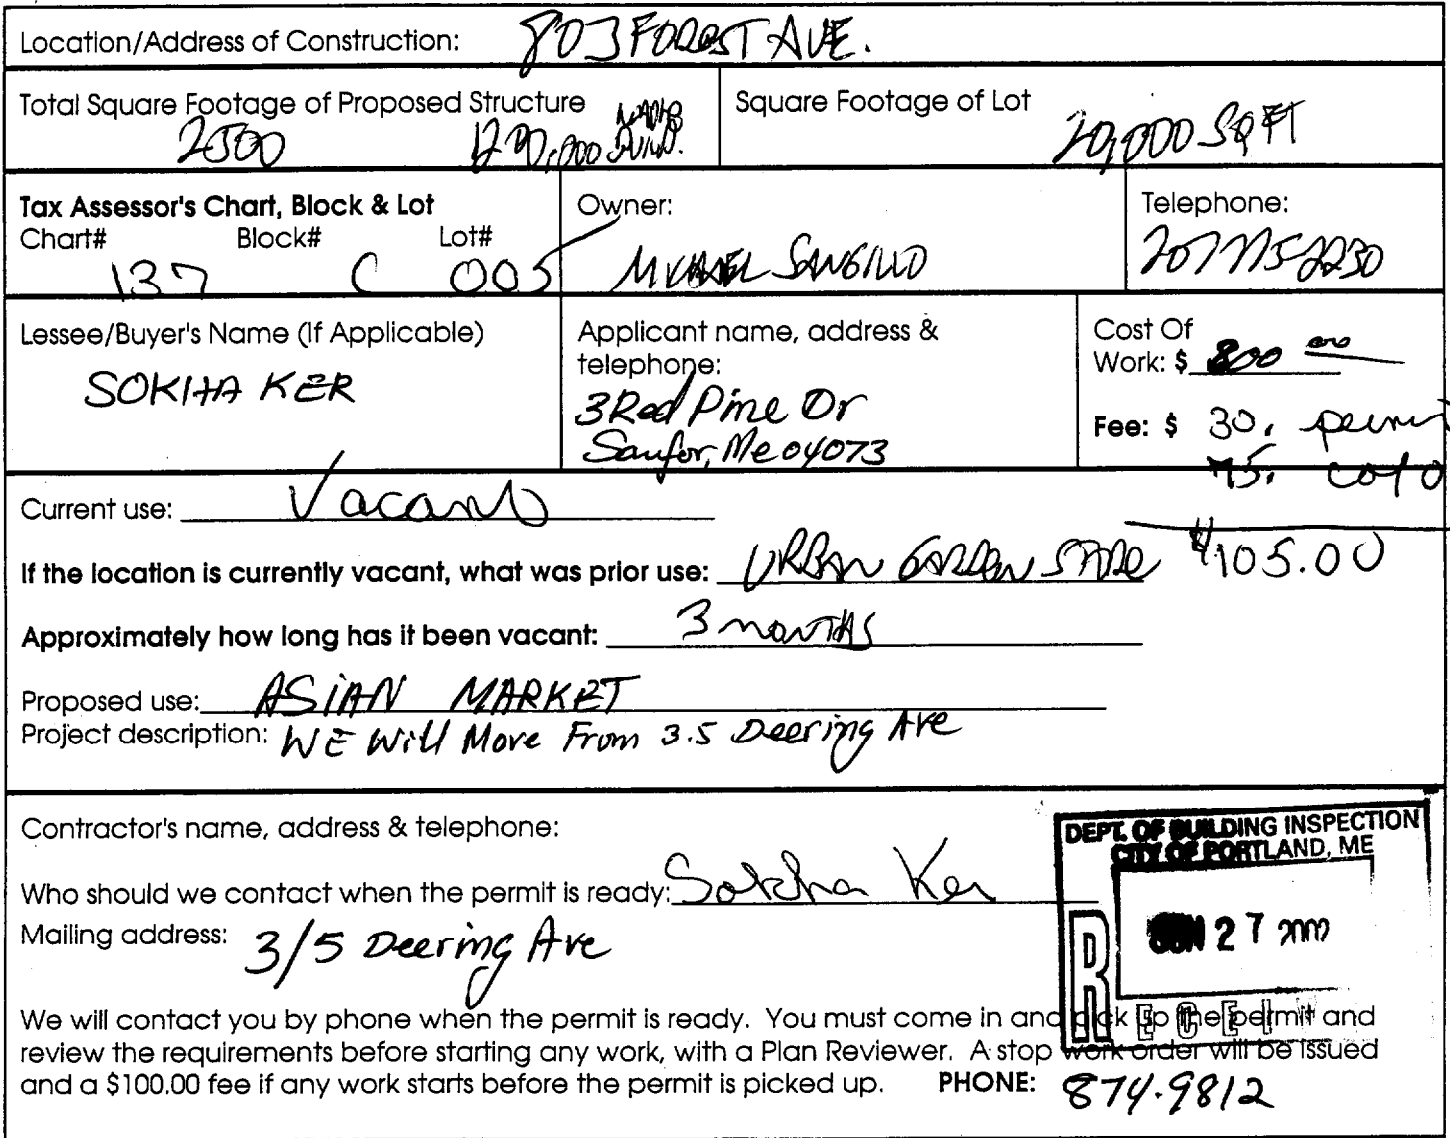 Location/Address of Construction: 803 FOREST AVE.
Total Square Footage of Proposed Structure
2500
Square Footage of Lot
20,000 SQ FT
Tax Assessor's Chart, Block & Lot
Chart# Block# Lot#
137 C 005
Owner:
MICHAEL SANGILLO
Telephone:
207 775-2230
Lessee/Buyer's Name (If Applicable)
SOKHA KER
Applicant name, address &
telephone:
3 Red Pine Dr
Sanfor, Me 04073
Cost Of
Work: $ 800 00
Fee: $ 30. permit
75. cofo
$105.00
Current use: Vacant
If the location is currently vacant, what was prior use: URBAN GARDEN STORE
Approximately how long has it been vacant: 3 months
Proposed use: ASIAN MARKET
Project description: WE Will Move From 3.5 Deering Ave
Contractor's name, address & telephone:
Who should we contact when the permit is ready: Sokha Ker
Mailing address: 3/5 Deering Ave
DEPT. OF BUILDING INSPECTION
CITY OF PORTLAND, ME
JUN 27 2002
We will contact you by phone when the permit is ready. You must come in and pick up the permit and
review the requirements before starting any work, with a Plan Reviewer. A stop work order will be issued
and a $100.00 fee if any work starts before the permit is picked up. PHONE: 874-9812